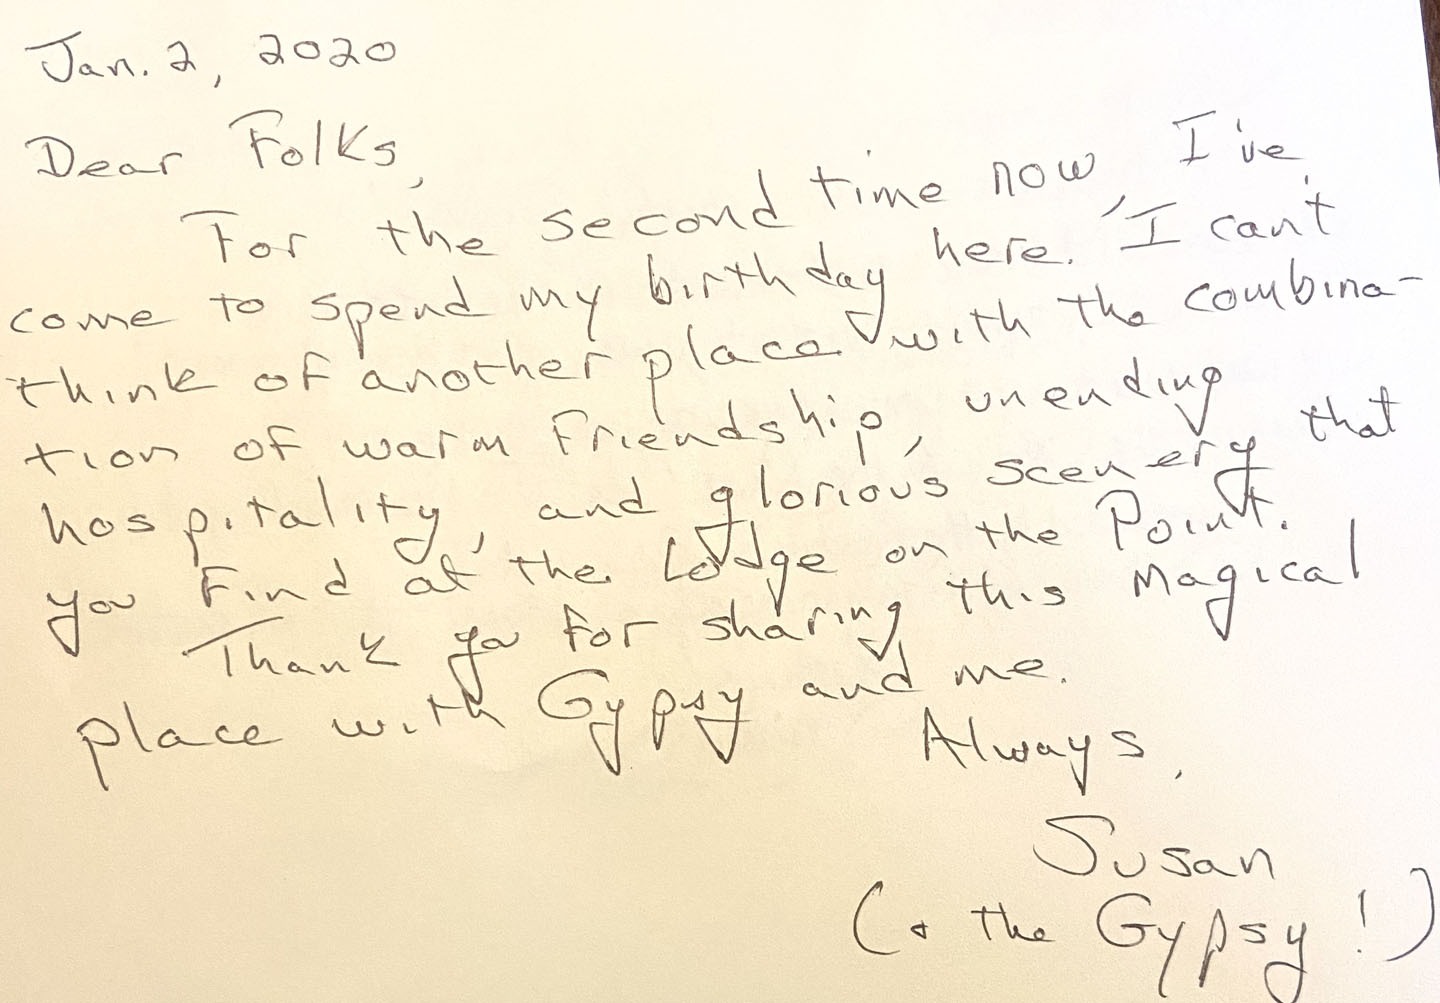 Jan. 2, 2020
Dear Folks,
For the second time now, I've
come to spend my birthday here. I can't
think of another place with the combina-
tion of warm friendship, unending
hospitality, and glorious scenery that
you find at the Lodge on the Point.
Thank you for sharing this magical
place with Gypsy and me.
Always,
Susan
(+ the Gypsy!)